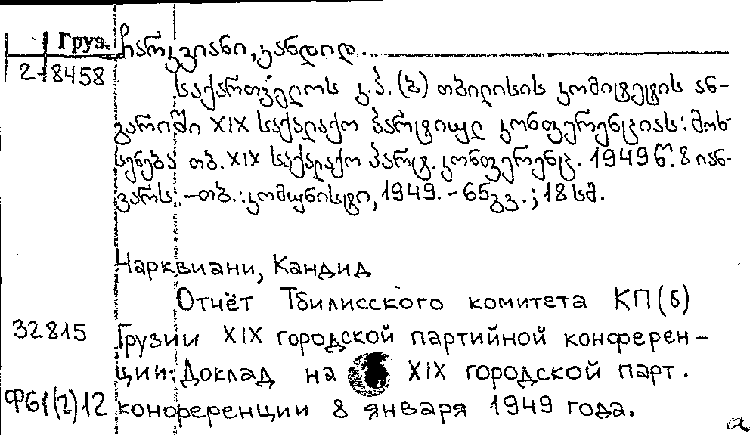 Груз. ჩარკვიანი, კანდიდ.
2-8458
საქართველოს კ.პ.(ბ) თბილისის კომიტეტის ან-
გარიში XIX საქალაქო პარტიულ კონფერენციას: მოხ-
სენება თბ. XIX საქალაქო პარტ. კონფერენც. 1949 წ. 8 იან-
ვარს. – თბ.: კომუნისტი, 1949. – 65 გვ.; 18 სმ.
Чарквиани, Кандид
Отчёт Тбилисского комитета КП(б)
32815 Грузии XIX городской партийной конферен-
ции: Доклад на XIX городской парт.
Ф61(2)12 конференции 8 января 1949 года.